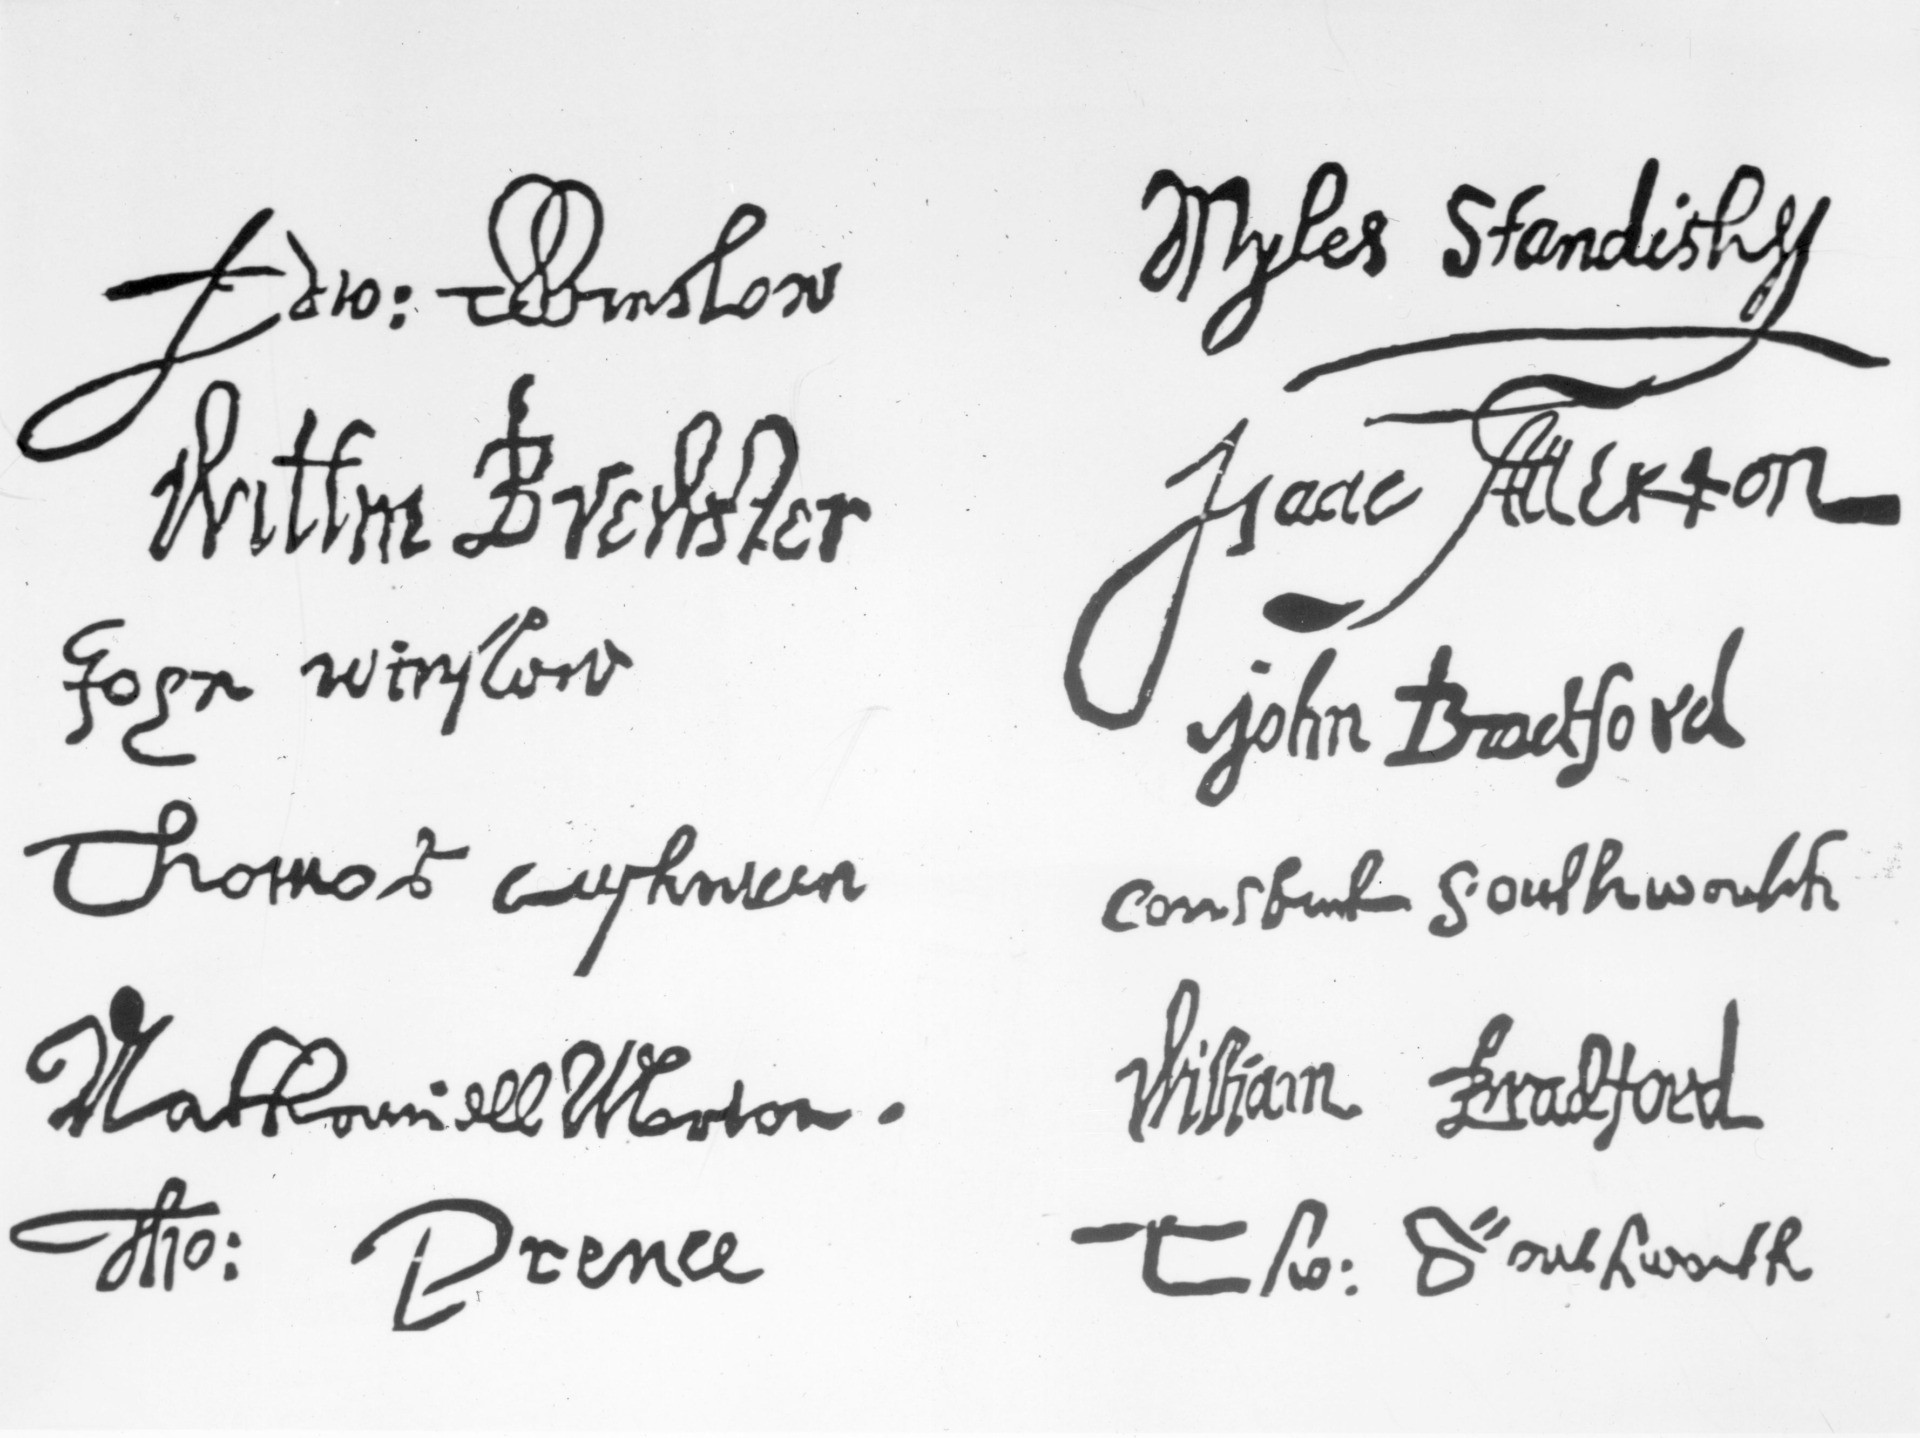 Edw: Winslow
Willm Brewster
John winslow
Thomas cushman
Nathaniell Morton.
Tho: Prence
Myles Standish
Isaac Allerton
john Bradford
constant southworth
William Bradford
Tho: Southworth